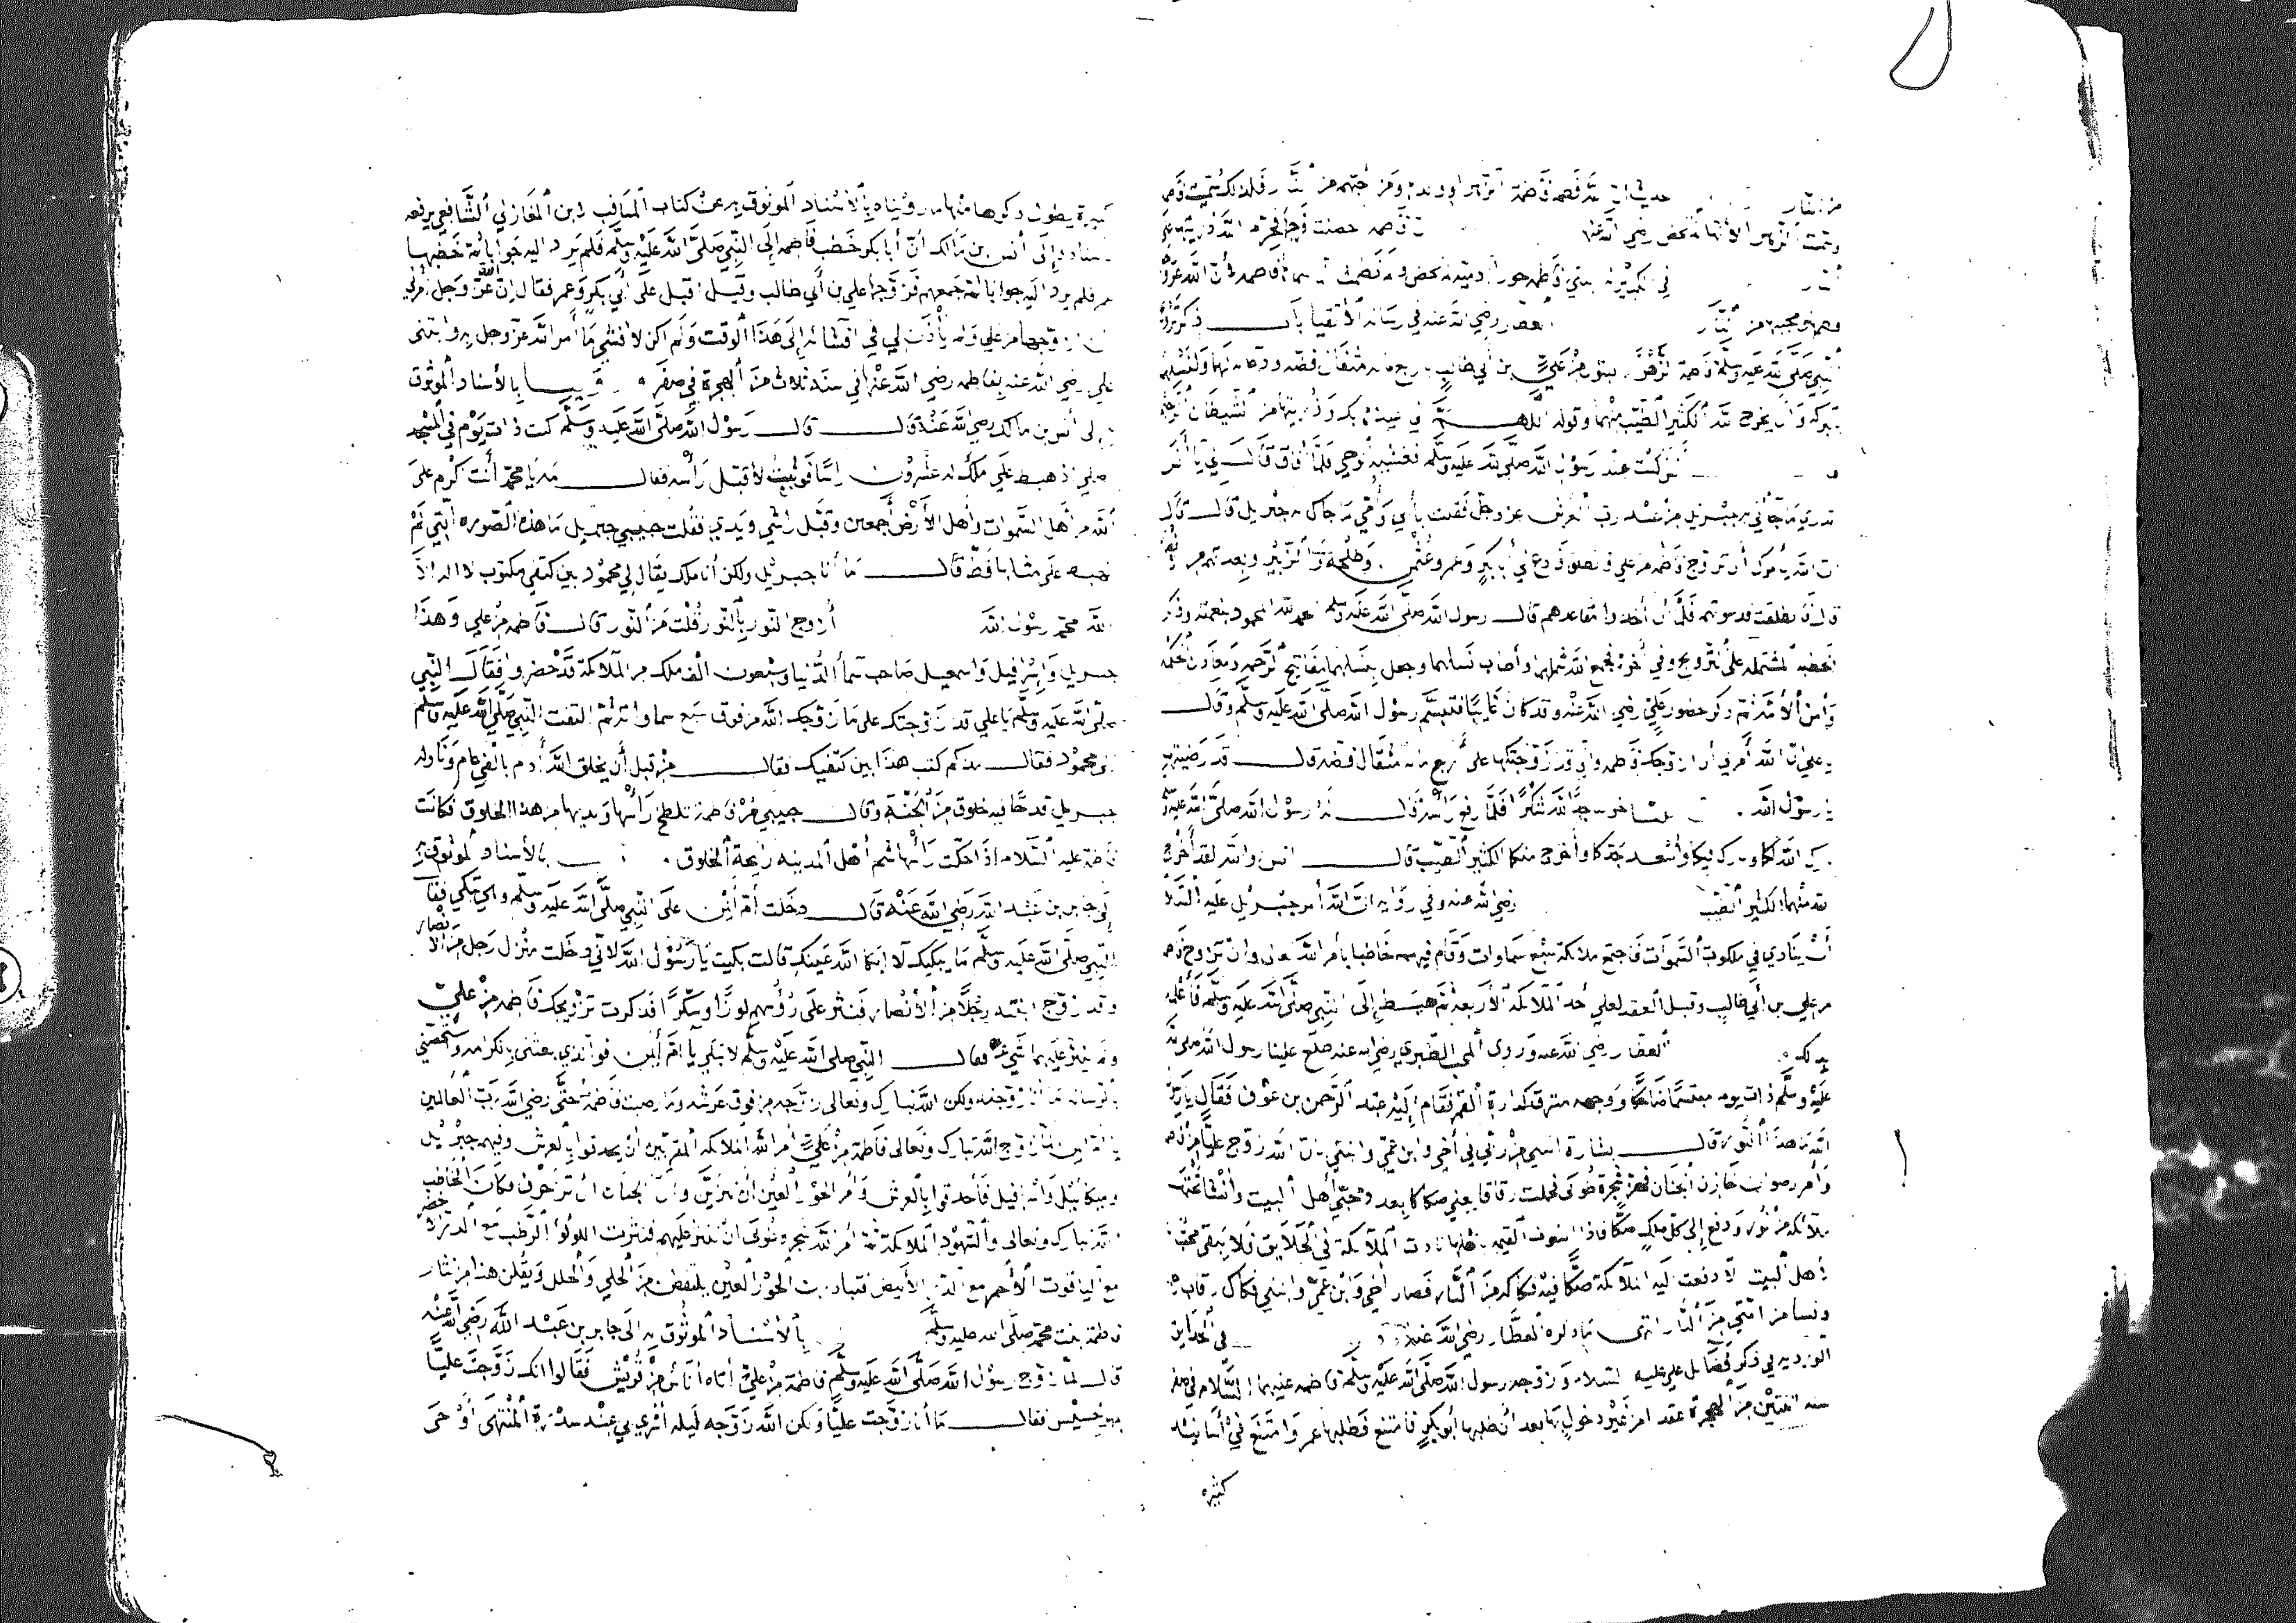 من النار حديث ان الله فطم فاطمة الزهرا وولدها ومن احبهم من النار فلذلك سميت فاطمة
وسميت الزهرا لانها لم تحض رضي الله عنها ان فاطمة حصنت فرجها فحرم الله ذريتها على
النار ابنتي فاطمة حورا ادمية لم تحض ولم تطمث انما سماها فاطمة لأن الله عز وجل
فطمها ومحبيها من النار العطار رضي الله عنه في رسالة الأتقيا بأن
النبي صلى الله عليه وسلم فاطمة الزهرا البتول من علي بن أبي طالب باربع مائة مثقال فضة ودعا لهما ولنسلهما
بالبركة وان يخرج الله الكثير الطيب منهما وقوله اللهم اني اعيذها بك وذريتها من الشيطان الرجيم
أنس كنت عند رسول الله صلى الله عليه وسلم فغشيه الوحي فلما أفاق قال لي يا أنس
تدري ما جاني به جبريل من عند رب العرش عز وجل فقلت بأبي وأمي ما جاك به جبريل قال قال
ان الله يأمرك أن تزوج فاطمة من علي فانطلق فادع لي أبا بكر وعمر وعثمن وطلحة والزبير وبعدتهم من الأنصار
قال فانطلقت فدعوتهم فلما ان أخذوا مقاعدهم قال رسول الله صلى الله عليه وسلم الحمد لله المحمود بنعمته وذكر
الخطبة المشتملة على التزويج وفي آخره فجمع الله شملهما وأطاب نسلهما وجعل نسلهما مفاتيح الرحمة ومعادن الحكمة
وأمن الأمة ثم ذكر حضور علي رضي الله عنه وقد كان غايبا فتبسم رسول الله صلى الله عليه وسلم وقال
يا علي ان الله أمرني أن ازوجك فاطمة واني قد زوجتكها على أربع مائة مثقال فضة قال قد رضيتها
يا رسول الله ثم ان عليا خر ساجدا لله شكرا فلما رفع رأسه قال له رسول الله صلى الله عليه وسلم
بارك الله لكما وبارك فيكما وأسعد جدكما وأخرج منكما الكثير الطيب قال انس والله لقد أخرج
الله منهما الكثير الطيب رضي الله عنه وفي رواية ان الله أمر جبريل عليه السلام
أن ينادي في ملكوت السموات فاجتمع ملائكة سبع سماوات وقام فيهم خاطبا بأمر الله تعالى وان تزوج فاطمة
من علي بن أبي طالب وقبل العقد لعلي أحد الملائكة الأربعة ثم هبط إلى النبي صلى الله عليه وسلم فأعلمه
بذلك العطار رضي الله عنه وروى المحب الطبري رضي الله عنه طلع علينا رسول الله صلى الله
عليه وسلم ذات يوم مبتسما ضاحكا ووجهه مشرق كدارة القمر فقام إليه عبد الرحمن بن عوف فقال يا رسول
الله ما هذا النور قال بشارة اتتني من ربي في أخي وابن عمي وابنتي بان الله زوج عليا من فاطمة
وأمر رضوان خازن الجنان فهز شجرة طوبى فحملت رقاقا يعني صكاكا بعدد محبي أهل البيت وأنشأ تحتها
ملائكة من نور ودفع إلى كل ملك صكا فاذا استوت القيمة باهلها نادت الملائكة في الخلائق فلا يبقى محب
لأهل البيت الا دفعت إليه الملائكة صكا فيه فكاكه من النار فصار أخي وابن عمي وابنتي فكاك رقاب رجال
ونسا من امتي من النار انتهى ما ذكره العطار رضي الله عنه في الحدايق
الوردية في ذكر فضايل علي عليه السلام وزوجه رسول الله صلى الله عليه وسلم فاطمة عليهما السلام في صفر
سنة اثنتين من الهجرة عقدا من غير دخول بها بعد أن طلبها أبو بكر فامتنع فطلبها عمر وامتنع في أسانيد
كثيرة
كثيرة يطول ذكرها منها ما رويناه بالأسناد الموثوق به عن كتاب المناقب لابن المغازلي الشافعي يرفعه
باسناده إلى أنس بن مالك أن أبا بكر خطب فاطمة إلى النبي صلى الله عليه وسلم فلم يرد اليه جوابا ثم خطبها
عمر فلم يرد اليه جوابا ثم جمعهم فزوجها علي بن أبي طالب وقيل اقبل على أبي بكر وعمر فقال ان الله عز وجل أمرني
أن ازوجها من علي ولم يأذن لي في افشائه إلى هذا الوقت ولم اكن لافشي ما أمر الله عز وجل به وابتنى
علي رضي الله عنه بفاطمة رضي الله عنها في سنة ثلاث من الهجرة في صفر بالأسناد الموثوق
به إلى أنس بن مالك رضي الله عنه قال قال رسول الله صلى الله عليه وسلم كنت ذات يوم في المسجد
اصلي اذ هبط علي ملك له عشرون راسا فوثبت لأقبل رأسه فقال مه يا محمد أنت أكرم على
الله من أهل السموات وأهل الأرض أجمعين وقبل راسي ويدي فقلت حبيبي جبريل ما هذه الصورة التي لم
تهبط علي بمثلها قط قال ما أنا جبريل ولكن أنا ملك يقال لي محمود بين كتفي مكتوب لا اله الا
الله محمد رسول الله أزوج النور بالنور قلت من النور قال فاطمة من علي وهذا
جبريل واسرافيل واسمعيل صاحب سما الدنيا وسبعون الف ملك من الملائكة قد حضروا فقال النبي
صلى الله عليه وسلم يا علي قد زوجتك على ما زوجك الله من فوق سبع سماواته ثم التفت النبي صلى الله عليه وسلم
إلى محمود فقال مذ كم كتب هذا بين كتفيك فقال من قبل أن يخلق الله آدم بالفي عام وناوله
جبريل قدحا فيه خلوق من الجنة وقال حبيبي مر فاطمة تلطخ رأسها ويديها من هذا الخلوق فكانت
فاطمة عليها السلام إذا حكت رأسها شم أهل المدينة رايحة الخلوق بالأسناد الموثوق به
إلى جابر بن عبد الله رضي الله عنه قال دخلت أم أيمن على النبي صلى الله عليه وسلم وهي تبكي فقال
النبي صلى الله عليه وسلم ما يبكيك لا ابكا الله عينيك قالت بكيت يا رسول الله لاني دخلت منزل رجل من الأنصار
وقد زوج ابنته رجلا من الأنصار فنثر على رؤسهم لوزا وسكرا فذكرت تزويجك فاطمة من علي
ولم ينثر عليهما شي فقال النبي صلى الله عليه وسلم لا تبكي يا أم أيمن فوالذي بعثني بالكرامة واستخصني
بالرسالة ما أنا زوجته ولكن الله تبارك وتعالى زوجه من فوق عرشه وما رضيت فاطمة حتى رضي الله رب العالمين
يا أم أيمن لما زوج الله تبارك وتعالى فاطمة من علي أمر الله الملائكة المقربين أن يحدقوا بالعرش وفيهم جبريل
وميكائيل واسرافيل فأحدقوا بالعرش وأمر الحور العين أن يتزين وأمر الجنان ان تزخرف فكان الخاطب
الله تبارك وتعالى والشهود الملائكة ثم أمر الله شجرة طوبى أن تنثر عليهم فنثرت اللؤلؤ الرطب مع الدر الأخضر
مع الياقوت الأحمر مع الدر الأبيض فتبادرت الحور العين يلتقطن من الحلي والحلل ويقلن هذا من نثار
فاطمة بنت محمد صلى الله عليه وسلم بالأسناد الموثوق به الى جابر بن عبد الله رضي الله عنه
قال لما زوج رسول الله صلى الله عليه وسلم فاطمة من علي أتاه أناس من قريش فقالوا انك زوجت عليا
بمهر خسيس فقال ما أنا زوجت عليا ولكن الله زوجه ليلة أسري بي عند سدرة المنتهى أوحى